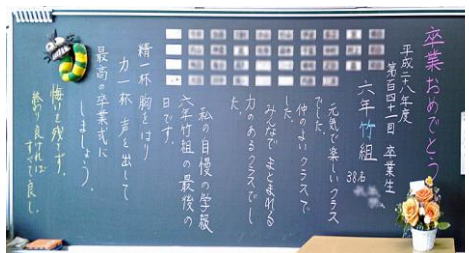 卒業おめでとう
平成二八年度
第百四十一回 卒業生
六年竹組
38名
元気で楽しいクラス
でした。
仲のよいクラスで
した。
みんなでまとまれる
力のあるクラスでし
た。
私の自慢の学級
六年竹組の最後の
日です。
精一杯 胸をはり
力一杯 声を出して
最高の卒業式に
しましょう。
悔いを残さず、
終わり良ければ
すべて良し。